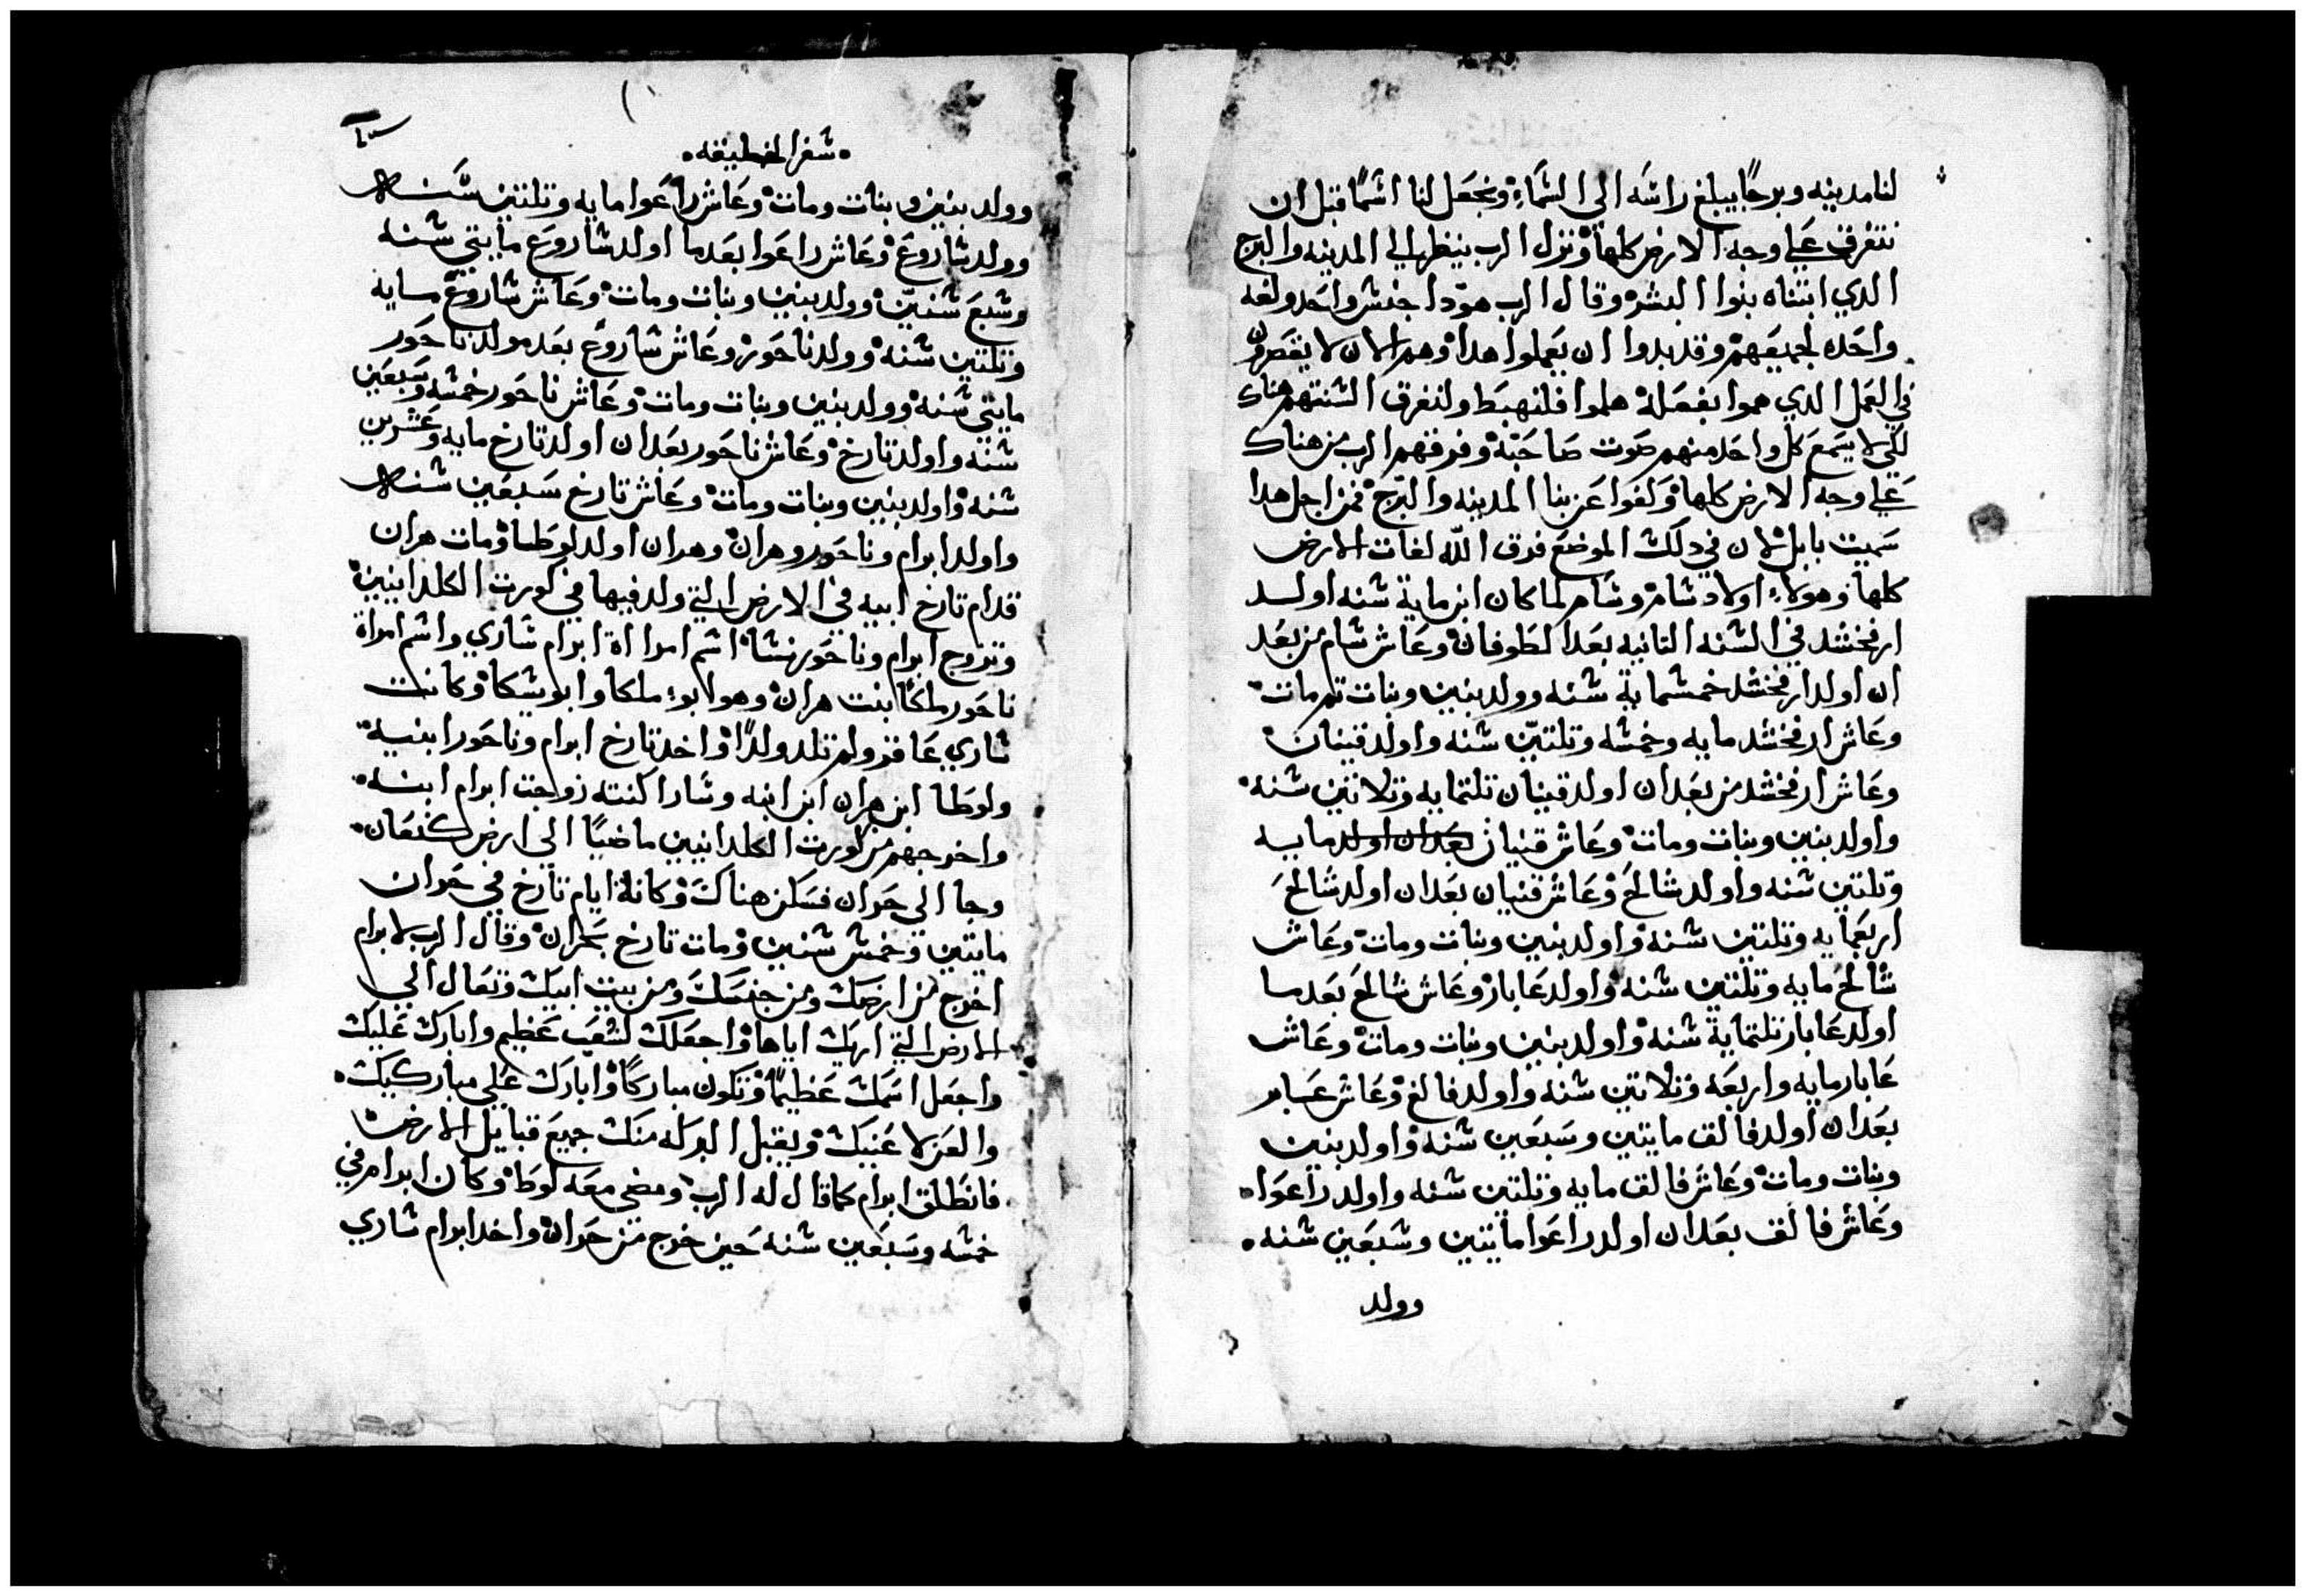 لنا مدينه وبرجًا يبلغ راشه الي الشماء ونجعل لنا اشمًا قبل ان
نتفرق علي وجه الارض كلها ونزل الرب ينظر الي المدينه والبرج
الدي ابتناه بنوا البشر وقال الرب هودا جنش واحد ولغه
واحده لجميعهم وقد بدوا ان يعملوا هدا وهم الان لا يقصرون
في العمل الدي هموا بفعله هلموا فلنهبط ولنفرق الشنتهم هناك
لكي لا يسمع كل واحد منهم صوت صاحبه وفرقهم الرب من هناك
علي وجه الارض كلها وكفوا عن بنا المدينه والبرج فمن اجل هدا
سميت بابل لان في دلك الموضع فرق الله لغات الارض
كلها وهولاء اولاد شام وشام لما كان ابن ماية شنه اولد
ارفخشد في الشنه التانيه بعد الطوفان وعاش شام من بعد
ان اولد ارفخشد خمشماية شنه وولد بنين وبنات تم مات
وعاش ارفخشد مايه وخمشه وتلتين شنه واولد قينان
وعاش ارفخشد من بعد ان اولد قينان تلتمايه وتلاتين شنه
واولد بنين وبنات ومات وعاش قنيان بعد ان اولد مايه
وتلتين شنه واولد شالح وعاش قنيان بعد ان اولد شالح
اربعمايه وتلتين شنه واولد بنين وبنات ومات وعاش
شالح مايه وتلتين شنه واولد عابار وعاش شالح بعد ما
اولد عابار تلتماية شنه واولد بنين وبنات ومات وعاش
عابار مايه واربعه وتلاتين شنه واولد فالغ وعاش عابر
بعد ان اولد فالق مايتين وسبعين شنه واولد بنين
وبنات ومات وعاش فالق مايه وتلتين شنه واولد راعوا
وعاش فالق بعد ان اولد راعوا مايتين وشبعين شنه
وولد
شفر الخليقه
وولد بنين وبنات ومات وعاش راعوا مايه وتلتين شنه
وولد شاروع وعاش راعوا بعد ما اولد شاروع مايتي شنه
وشبع شنين وولد بنين وبنات ومات وعاش شاروع مايه
وتلتين شنه وولد ناحور وعاش شاروع بعد مولد ناحور
مايتي شنه وولد بنين وبنات ومات وعاش ناحور خمشه وسبعين
شنه واولد تارخ وعاش ناحور بعد ان اولد تارخ مايه وعشرين
شنه واولد بنين وبنات ومات وعاش تارخ سبعين شنه
واولد ابرام وناحور وهران وهران اولد لوطا ومات هران
قدام تارخ ابيه في الارض التي ولد فيها في كورت الكلدانيين
وتزوج ابرام وناحور نشا اشم امراة ابرام شاري واشم امراة
ناحور ملكا بنت هران وهو ابو ملكا وابو يشكا وكانت
شاري عاقر ولم تلد ولدًا واخد تارخ ابرام وناحور ابنيه
ولوطا ابن هران ابن ابنه وشارا كنته زوجت ابرام ابنه
واخرجهم من كورت الكلدانيين ماضيًا الي ارض كنعان
وجا الي حران فسكن هناك وكانة ايام تارخ في حران
مايتين وخمش شنين ومات تارخ بحران وقال الرب لابرام
اخرج من ارضك ومن جنسك ومن بيت ابيك وتعال الي
الارض التي اريك اياها واجعلك لشعب عظيم وابارك عليك
واجعل اسمك عظيمًا وتكون مباركًا وابارك علي مباركيك
والعن لاعنيك ويقبل البركه منك جميع قبايل الارض
فانطلق ابرام كما قال له الرب ومضي معه لوطا وكان ابرام في
خمشه وسبعين شنه حين خرج من حران واخد ابرام شاري